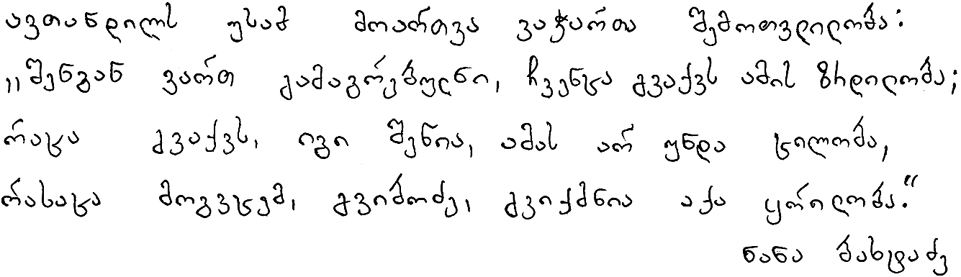 ავთანდილს უსამ მოართვა ვაჭართა შემოთვლილობა:
„შენგან ვართ გამაგრებულნი, ჩვენცა გვაქვს ამის ზრდილობა;
რაცა გვაქვს, იგი შენია, ამას არ უნდა ცილობა,
რასაცა მოგვცემ, გვიბოძე, გვიქმნია აქა ყრილობა.“
ნანა მახტაძე